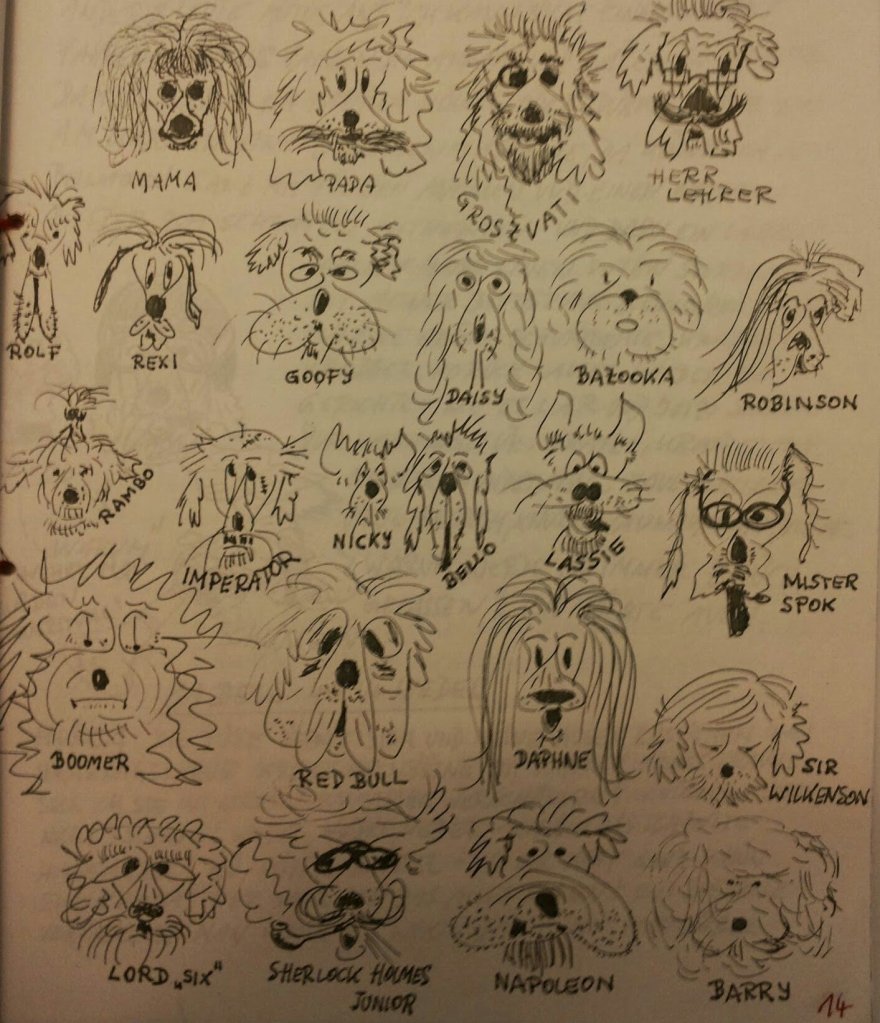 MAMA
PAPA
GROSZVATI
HERR
LEHRER
ROLF
REXI
GOOFY
DAISY
BAZOOKA
ROBINSON
RAMBO
IMPERATOR
NICKY
BELLO
LASSIE
MISTER
SPOK
BOOMER
RED BULL
DAPHNE
SIR
WILKENSON
LORD „SIX"
SHERLOCK HOLMES
JUNIOR
NAPOLEON
BARRY
14